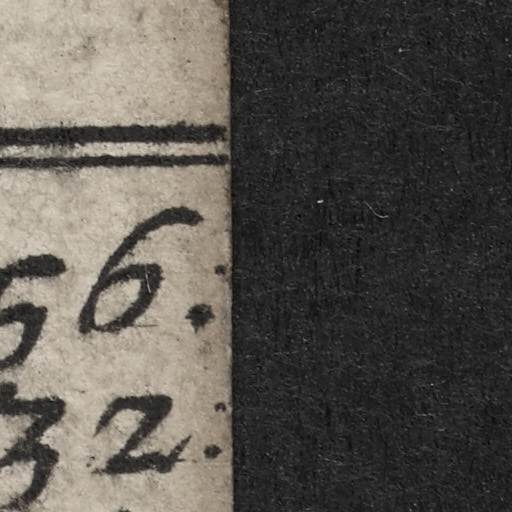 56.
32.